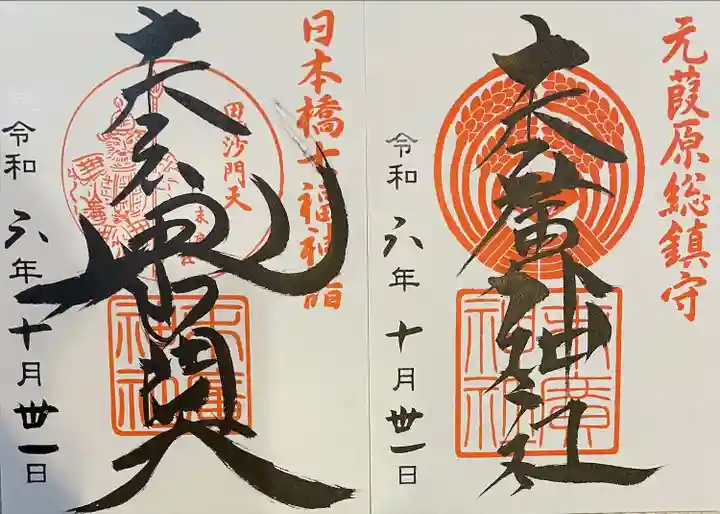 元葭原総鎮守
末廣神社
末廣神社
令和六年十月丗一日
日本橋七福神詣
毘沙門天
末廣神社
末広毘沙門天
末廣神社
令和六年十月丗一日